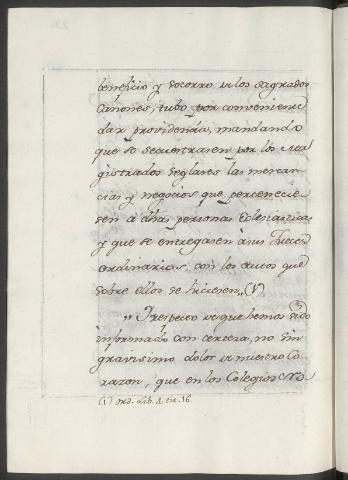 beneficio y socorro de los Sagrados
Cánones, tubo por conveniente
dar providencia, mandando
que se secuestrasen por los Ma-
gistrados Seglares las mercan-
cias y negocios que pertenecie-
sen á dhas personas Eclesiasticas
y que se entregasen à sus Jueces
Ordinarios, con los autos que
sobre ellos se hiciesen,, (1)
,, Y respecto de que hemos sido
informado con certeza, no sin
gravisimo dolor de nuestro Co-
razon, que en los Colegios
(1) Ord. Lib. 4. tit. 16.